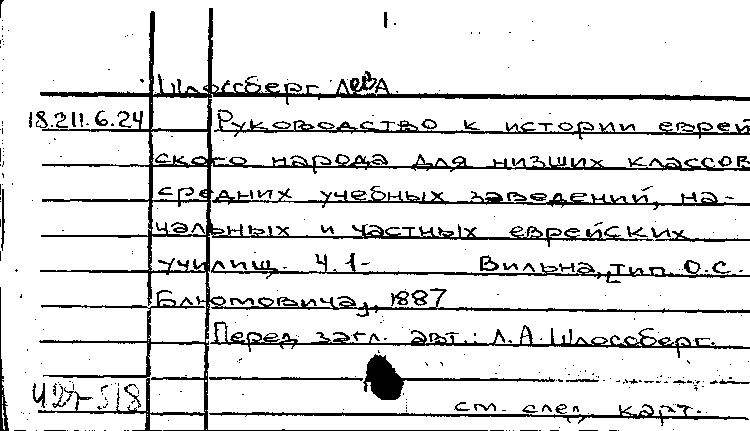 1.
Шлоссберг, Лев А.
18.211.6.24 Руководство к истории еврей
ского народа для низших классов
средних учебных заведений, на-
чальных и частных еврейских
училищ. Ч. 1- Вильна, [тип. О.С.
Блюмовича], 1887
Перед загл. авт.: Л.А. Шлоссберг.
см. след. карт.